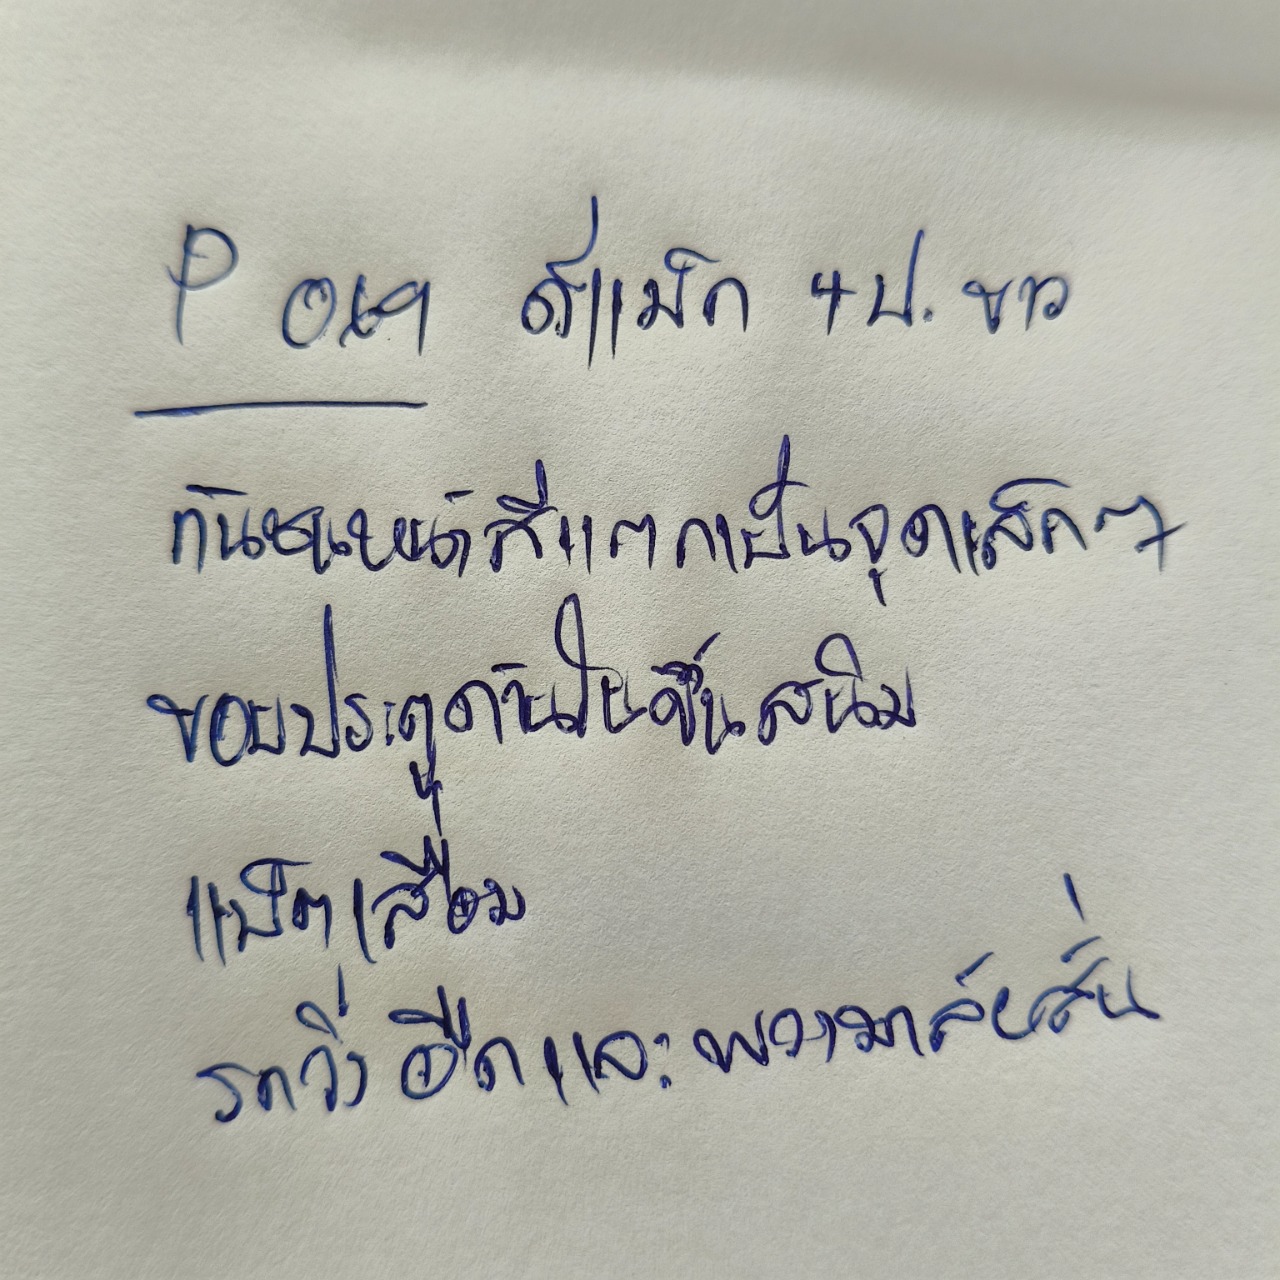 P อิฐ ดีแม็ก 4 ป. ขาว
กันชนหน้าสีแตกเป็นจุดเล็กๆ
ขอบประตูด้านในขึ้นสนิม
แบ็ตเสื่อม
รถวิ่งอืดและพวงมาลัยสั่น